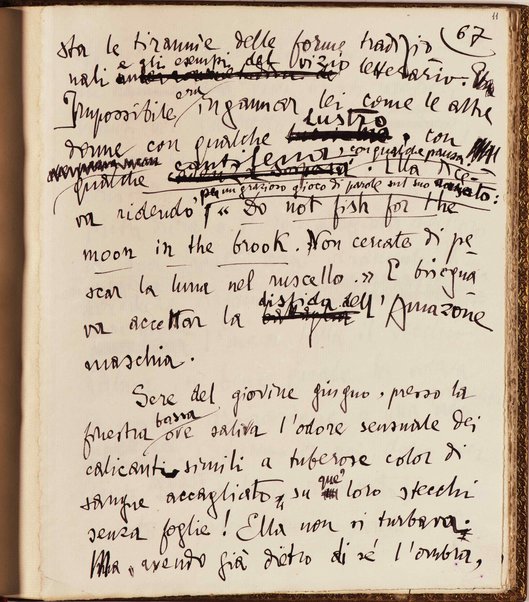 11
67
sta le tirannie delle forme tradizio
nali e gli esempi del vizio letterario.
Impossibile era ingannar lei come le altre
donne con qualche lustro, con
qualche cantilena, con qualche pausa. Ella dice
va ridendo, per un grazioso gioco di parole sul suo casato:
« Do not fish for the
moon in the brook. Non cercate di pe
scar la luna nel ruscello. » E bisogna
va accettar la disfida dell'Amazône
maschia.
Sere del giovine giugno, presso la
finestra bassa ove saliva l'odore sensuale dei
calicanti simili a tuberose color di
sangue accagliato, su que' loro stecchi
senza foglie! Ella non si turbava.
Ma, avendo già dietro di sé l'ombra,